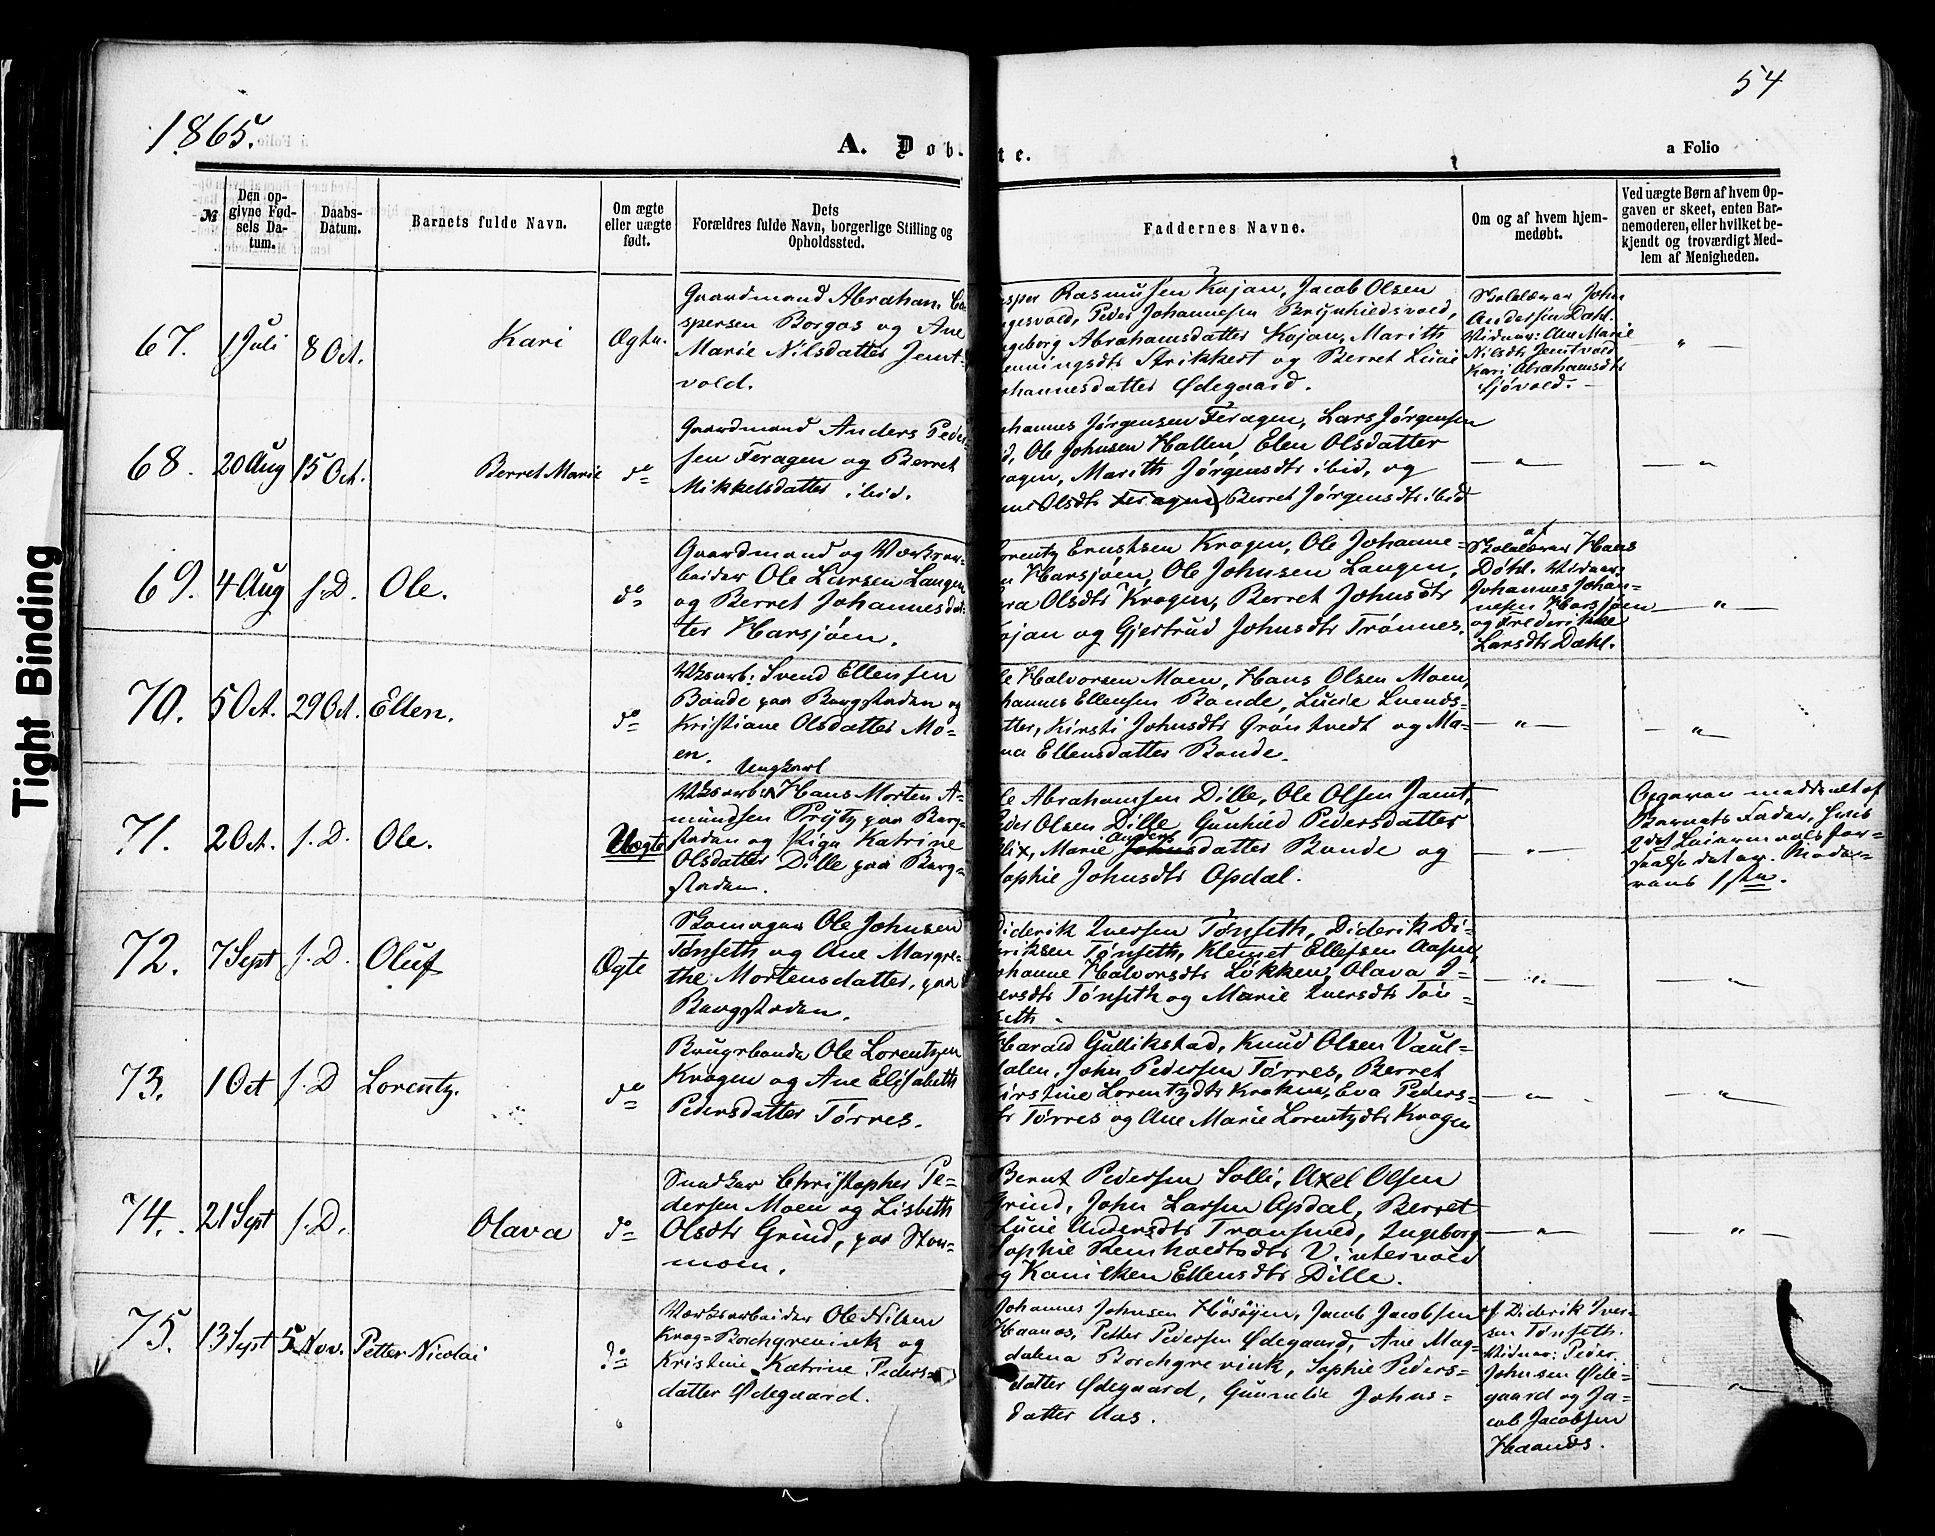 54
1865.
A. Døb-
te.
a Folio
№
Den op-
givne Fød-
sels Da-
tum.
Daabs-
Datum.
Barnets fulde Navn.
Om ægte
eller uægte
født.
Dets
Forældres fulde Navn, borgerlige Stilling og
Opholdssted.
Faddernes Navne.
Om og af hvem hjem-
medøbt.
Ved uægte Børn af hvem Op-
gaven er skeet, enten Bar-
nemoderen, eller hvilket be-
kjendt og troværdigt Med-
lem af Menigheden.
67. 1 Juli 8 Oct. Kari Ægte.
Gaardmand Abraham Ca-
spersen Borgos og Ane
Marie Nilsdatter Jemt-
vold.
asper Rasmusen Kojan, Jacob Olsen
ngesvold, Peder Johannesen Brynhildsvold,
ngeborg Abrahamsdatter Kojan, Marith
enningsdtr Strikkert og Berret Lucie
ohannesdatter Ødegaard.
Skolelærer John
Andersen Dahl.
Vidner: Ane Marie
Nilsdtr Jemtvold
Kari Abrahamsdtr
Sjøvold.
"
68. 20 Aug 15 Oct. Berret Marie do
Gaardmand Anders Peder-
sen Feragen og Berret
Mikkelsdatter ibid.
ohannes Jørgensen Feragen, Lars Jørgensen
d, Ole Johnsen Hallen, Elen Olsdatter
ragen, Marith Jørgensdtr ibid, og
ne Olsdtr Feragen) Berret Jørgensdtr ibid
— " —
— " —
69. 4 Aug s. D. Ole. do
Gaardmand og Værksar-
beider Ole Larsen Langen
og Berret Johannesdat-
ter Harsjøen.
orentz Erntsen Kragen, Ole Johanne-
n Harsjøen, Ole Johnsen Langen,
ara Olsdtr Kragen, Berret Johnsdtr
ojan og Gjertrud Johnsdtr Trønnes.
af
Skolelærer Hans
Døhl. Vidner:
Johannes Johan-
nesen Harsjøen
og Frederikke
Larsdtr Dahl.
— " —
70. 5 Oct. 29 Oct. Ellen. do
Vksarb: Svend Ellensen
Bonde paa Bergstaden og
Kristiane Olsdatter Mo-
en.
le Halvorsen Moen, Hans Olsen Moen,
hannes Ellensen Bonde, Lucie Svends-
atter, Kirsti Johnsdtr Grøntvedt og Ma-
na Ellensdatter Bonde.
— " —
"
71. 2 Oct. s. D. Ole. Uægte
Ungkarl
Vksarb: Hans Morten A-
mundsen Prytz paa Berg-
staden og Pige Katrine
Olsdatter Dille paa Berg-
staden.
le Abrahamsen Dille, Ole Olsen Jamt,
Peder Olsen Dille Gunhild Pedersdatter
lix, Marie Anders Johnsdatter Bonde og
Sophie Johnsdtr Opdal.
— " —
Opgaven meddelt af
Barnets Fader, hvis
2det Leiermaals for-
seelse det er. Mode-
rens 1ste.
72. 7 Sept s. D. Oluf Ægte
Skomager Ole Johnsen
Tønseth og Ane Margre-
the Mortensdatter, paa
Bergstaden.
Diderik Iversen Tønseth, Diderik Di-
riksen Tønseth, Klemet Ellefsen Aasen,
ohanne Halvorsdtr Løkken, Olava I-
versdtr Tønseth og Marie Iversdtr Tøn-
seth.
— " —
— " —
73. 1 Oct s. D Lorentz. do
Brugsbonde Ole Lorentzen
Kragen og Ane Elisabeth
Pedersdatter Tørres.
Harald Gullikstad, Knud Olsen Vaul-
dalen, John Pedersen Tørres, Berret
Kirstine Lorentzdtr Kroken, Eva Peders-
dtr Tørres og Ane Marie Lorentzdtr Kragen
— " —
— " —
74. 21 Sept s. D. Olava do
Snedker Christopher Pe-
dersen Moen og Lisbeth
Olsdtr Grind, paa Stor-
moen.
Bernt Pedersen Solli, Axel Olsen
Grind, John Larsen Opdal, Berret
Lucie Andersdtr Trønsmed, Ingeborg
Sophie Reinholdtsdtr Vintervold
og Kanilken Ellensdtr Dille.
— " —
"
75. 13 Sept 5 Nov. Petter Nicolai do
Værksarbeider Ole Nilsen
Krag-Borchgrevink og
Kristine Katrine Peders-
datter Ødegaard.
Johannes Johnsen Høsøjen, Jacob Jacobsen
Haanes, Petter Pedersen Ødegaard, Ane Mag-
dalena Borchgrevink, Sophie Peders-
datter Ødegaard, Gunnelie Johns-
datter Aas.
af Diderik Iver-
sen Tønseth.
Vidner: Peder
Johnsen Øde-
gaard og Ja-
cob Jacobsen
Haanes.
— " —
Tight Binding